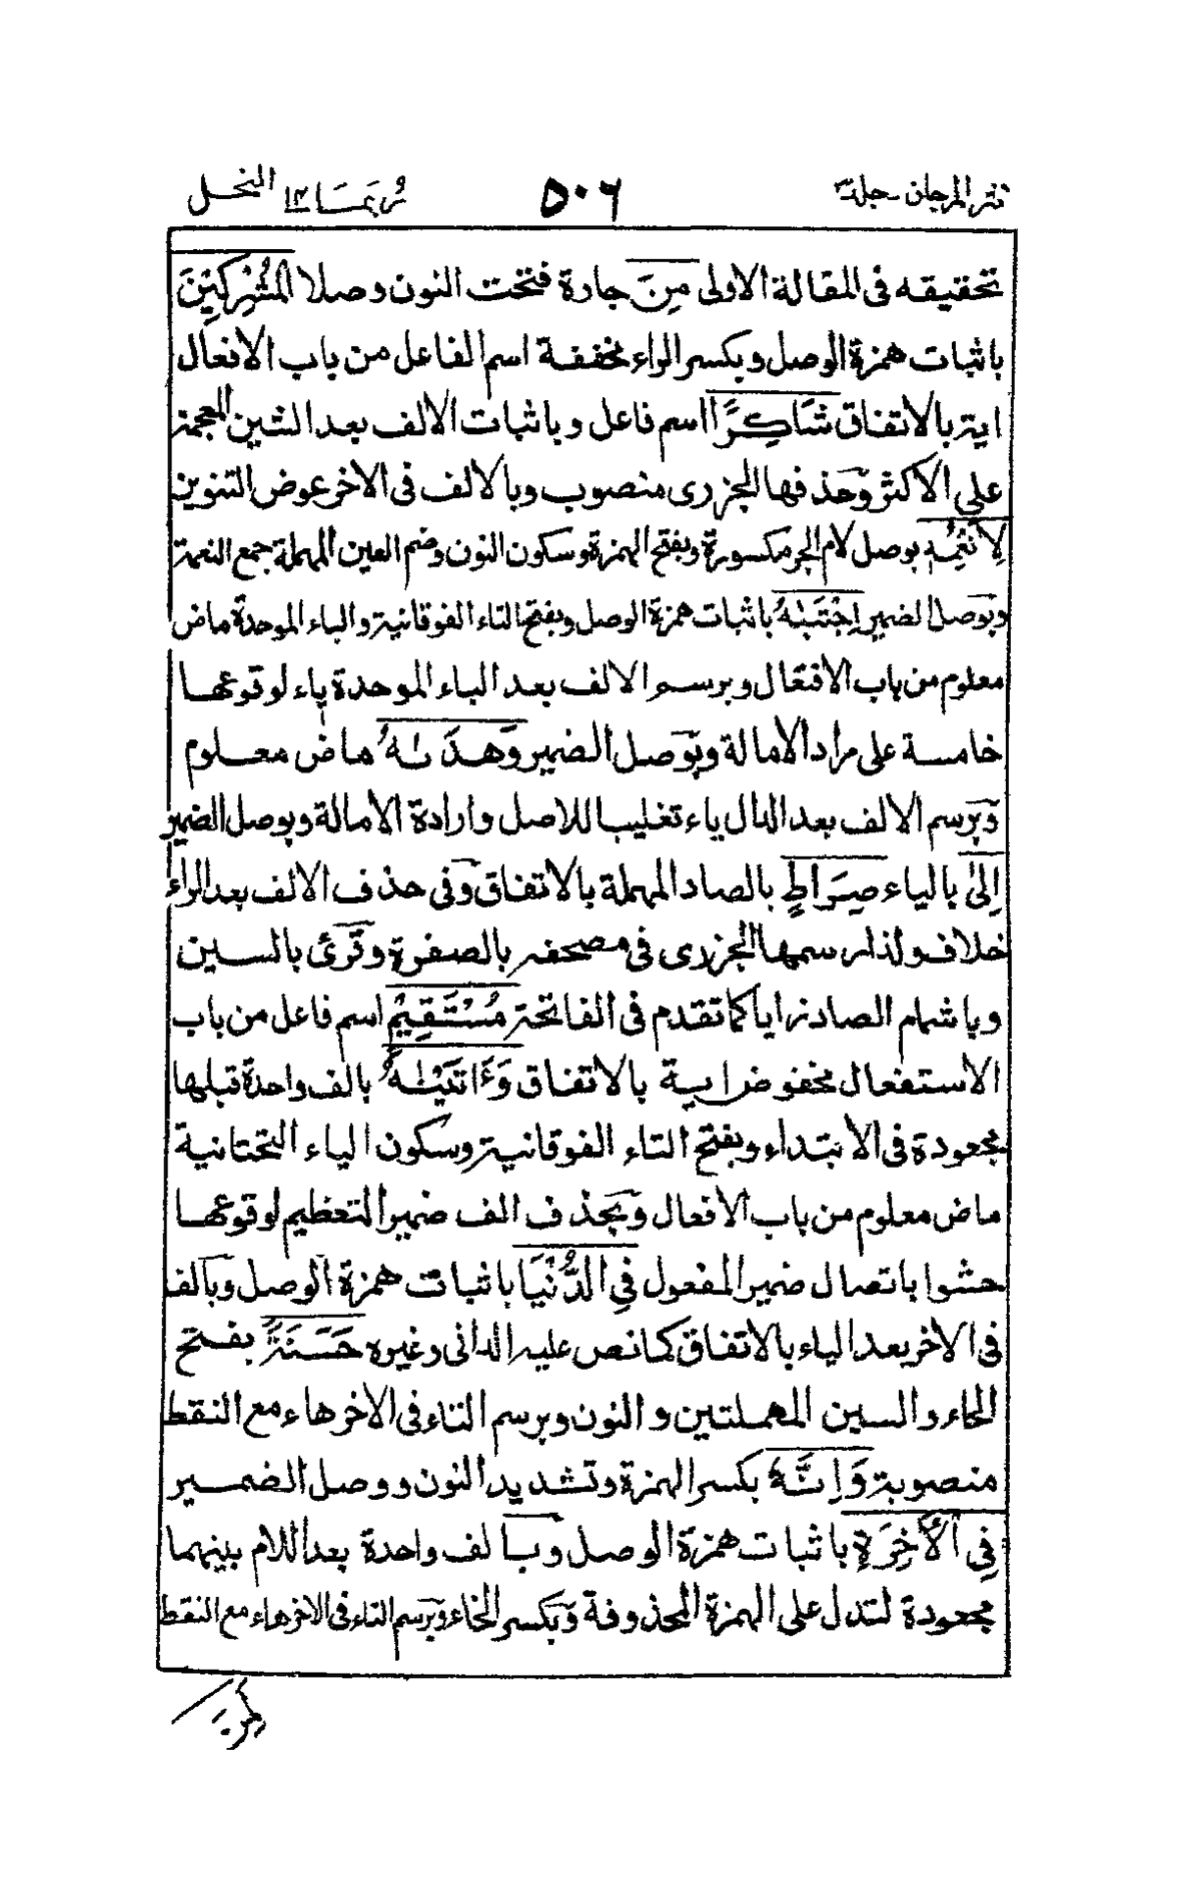 نثر المرجان - جلد ٣ ٥٠٦ رُبَمَا ١٤ النحل
تحقيقه فى المقالة الاولى مِنَ جارة فتخت النون وصلا الْمُشْرِكِيْنَ
باثبات همزة الوصل وبكسر الراء مخففة اسم الفاعل من باب الافعال
اية بالاتفاق شَاكِرًا اسم فاعل وباثبات الالف بعد الشين المعجمة
على الاكثر وحذفها الجزرى منصوب وبالالف فى الاخر عوض التنوين
لِاَنْعُمِهِ بوصل لام الجر مكسورة وبفتح الهمزة وسكون النون وضم العين المهملة جمع النعمة
وبوصل الضمير اِجْتَبٰىهُ باثبات همزة الوصل وبفتح التاء الفوقانية والباء الموحدة ماض
معلوم من باب الافتعال وبرسم الالف بعد الباء الموحدة ياء لوقوعها
خامسة على مراد الامالة وبوصل الضمير وَهَدٰىهُ ماض معلوم
وبرسم الالف بعد الدال ياء تغليبا للاصل وارادة الامالة وبوصل الضمير
اِلٰى بالياء صِرَاطٍ بالصاد المهملة بالاتفاق وفى حذف الالف بعد الراء
خلاف ولذا رسمها الجزرى فى مصحفه بالصفرة وقرئ بالسين
وباشمام الصاد زايا كما تقدم فى الفاتحة مُسْتَقِيْمٍ اسم فاعل من باب
الاستفعال مخفوض اية بالاتفاق وَءَاتَيْنٰهُ بالف واحدة قبلها
مجعودة فى الابتداء وبفتح التاء الفوقانية وسكون الياء التحتانية
ماض معلوم من باب الافعال وبحذف الف ضمير التعظيم لوقوعها
حشوا باتصال ضمير المفعول فِي الدُّنْيَا باثبات همزة الوصل وبالف
فى الاخر بعد الياء بالاتفاق كما نص عليه الدانى وغيره حَسَنَةً بفتح
الحاء والسين المهملتين والنون وبرسم التاء فى الاخر هاء مع النقط
منصوبة وَاِنَّهُ بكسر الهمزة وتشديد النون ووصل الضمير
فِي الْاٰخِرَةِ باثبات همزة الوصل وبالف واحدة بعد اللام بينهما
مجعودة لتدل على الهمزة المحذوفة وبكسر الخاء وبرسم التاء فى الاخر هاء مع النقط